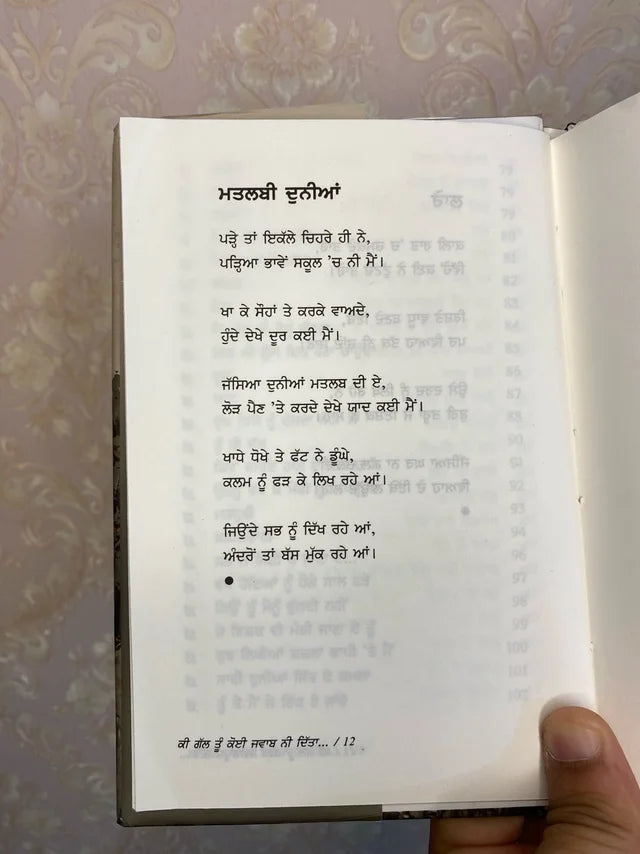 ਮਤਲਬੀ ਦੁਨੀਆਂ
ਪੜ੍ਹੇ ਤਾਂ ਇਕੱਲੇ ਚਿਹਰੇ ਹੀ ਨੇ,
ਪੜ੍ਹਿਆ ਭਾਵੇਂ ਸਕੂਲ ’ਚ ਨੀ ਮੈਂ।
ਖਾ ਕੇ ਸੌਹਾਂ ਤੇ ਕਰਕੇ ਵਾਅਦੇ,
ਹੁੰਦੇ ਦੇਖੇ ਦੂਰ ਕਈ ਮੈਂ।
ਜੱਸਿਆ ਦੁਨੀਆਂ ਮਤਲਬ ਦੀ ਏ,
ਲੋੜ ਪੈਣ ’ਤੇ ਕਰਦੇ ਦੇਖੇ ਯਾਦ ਕਈ ਮੈਂ।
ਖਾਧੇ ਧੋਖੇ ਤੇ ਫੱਟ ਨੇ ਡੂੰਘੇ,
ਕਲਮ ਨੂੰ ਫੜ ਕੇ ਲਿਖ ਰਹੇ ਆਂ।
ਜਿਉਂਦੇ ਸਭ ਨੂੰ ਦਿੱਖ ਰਹੇ ਆਂ,
ਅੰਦਰੋਂ ਤਾਂ ਬੱਸ ਮੁੱਕ ਰਹੇ ਆਂ।
●
ਕੀ ਗੱਲ ਤੂੰ ਕੋਈ ਜਵਾਬ ਨੀ ਦਿੱਤਾ... / 12